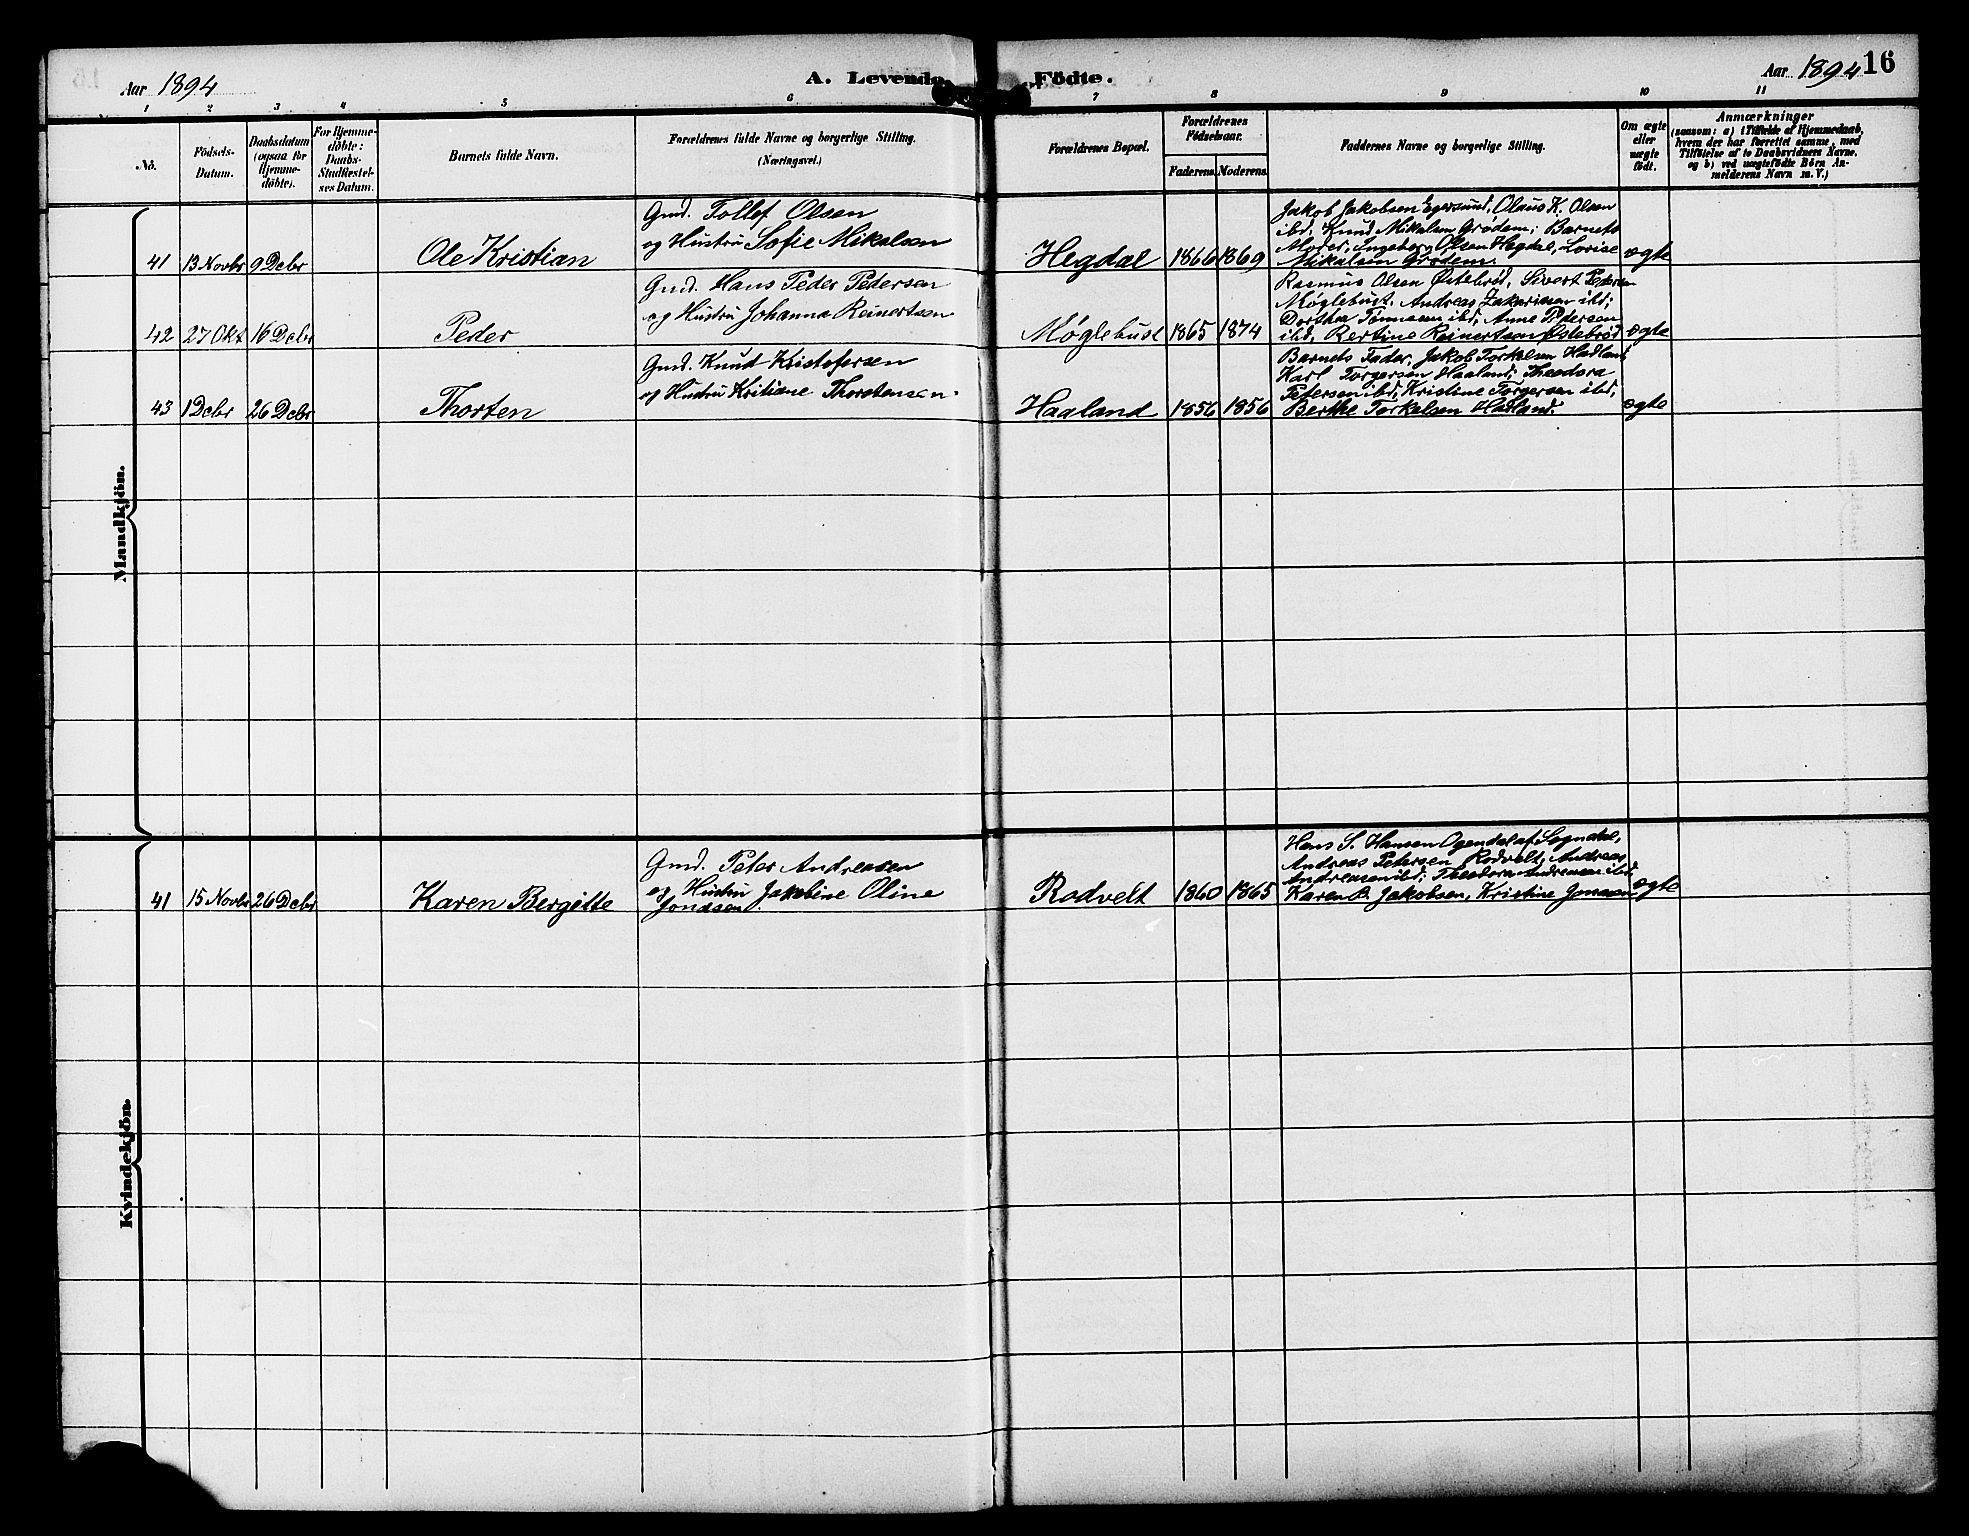 Aar 1894
A. Levende Födte.
Aar 1894 16
1 2 3 4 5 6 7 8 9 10 11
No.
Födsels-
Datum.
Daabsdatum
(ogsaa for
Hjemme-
döbte).
For Hjemme-
döbte:
Daabs-
Stadfæstel-
ses Datum.
Barnets fulde Navn.
Forældrenes fulde Navne og borgerlige Stilling.
(Næringsvei.)
Forældrenes Bopæl.
Forældrenes
Födselsaar.
Faderens. Moderens.
Faddernes Navne og borgerlige Stilling.
Om ægte
eller
uægte
födt.
Anmærkninger
(saasom: a) i Tilfælde af Hjemmedaab,
hvem der har forrettet samme, med
Tilföielse af to Daabsvidners Navne,
og b) ved uægtefödte Börn An-
melderens Navn m. V.)
Mandkjön.
41 13 Novbr 9 Debr
Ole Kristian
Gmd. Tollef Olsen
og Hustru Sofie Mikalsen
Hegdal 1866 1869
Jakob Jakobsen Egersund, Olaus K. Olsen
ibd, Knud Mikalsen Grødem; Barnets
Moder, Ingeborg Olsen Hegdal, Lovise
Mikalsen Grødem.
ægte
42 27 Okt 16 Debr
Peder
Gmd. Hans Peder Pedersen
og Hustru Johanna Reinertsen
Møglebust 1865 1874
Rasmus Olsen Østebrød, Sivert Pedersen
Møglebust, Andreas Zakariasen ibd;
Dorthea Tønnesen ibd, Anne Pedersen
ibd, Bertine Reinertsen Østebrød
ægte
43 1 Debr 26 Debr
Thorten
Gmd. Knud Kristofersen
og Hustru Kritiane Thorstensen
Haaland 1856 1856
Barnets Fader, Jakob Torkelsen Hadland
Karl Torgersen Haaland; Theodora
Petersen ibd, Kristine Torgersen ibd,
Berthe Torkelsen Hadland.
ægte
Kvindekjön.
41 15 Novbr 26 Debr
Karen Bergitte
Gmd. Peter Andreasen
og Hustru Jakobine Oline
Jondsen.
Rodvelt 1860 1865
Hans S. Hansen Ogendal af Sogndal,
Andreas Petersen Rodvelt, Andreas
Andreasen ibd; Theodora Andreasen ibd,
Karen B. Jakobsen, Kristine
ægte